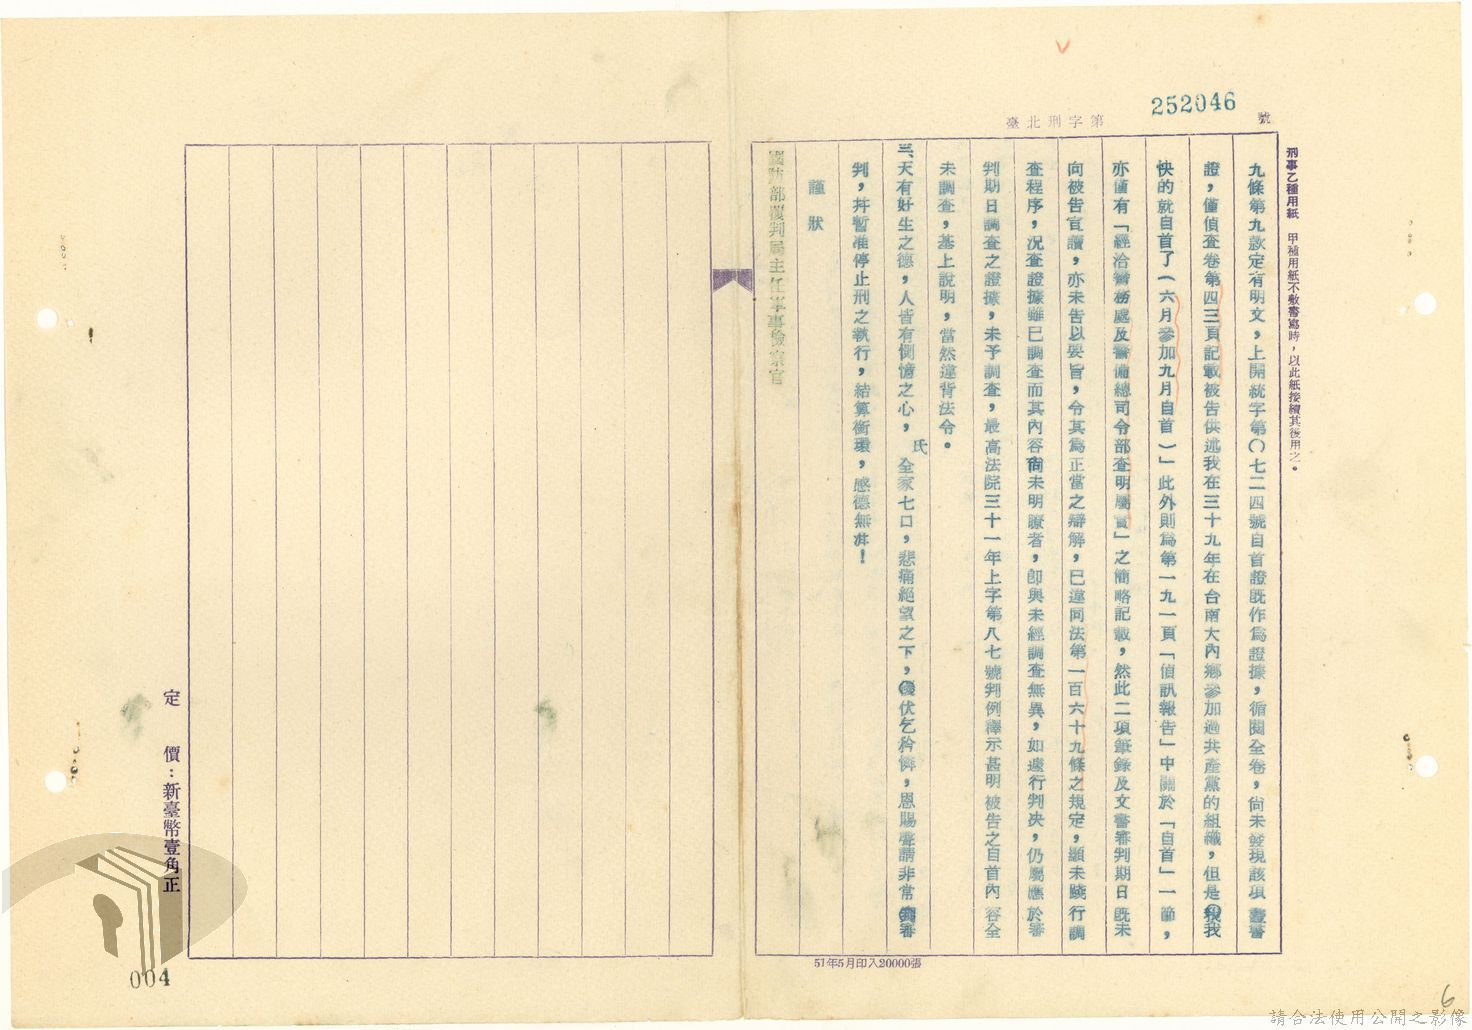 252046
臺北刑字第　　號
刑事乙種用紙　甲種用紙不敷書寫時，以此紙接續其後用之。
九條第九款定有明文，上開統字第〇七二四號自首證既作為證據，循閱全卷，尚未發現該項書
證，僅偵查卷第四三頁記載被告供述我在三十九年在台南大內鄉參加過共產黨的組織，但是我
快的就自首了（六月參加九月自首）」此外則為第一九一頁「偵訊報告」中關於「自首」一節，
亦僅有「經洽警務處及警備總司令部查明屬實」之簡略記載，然此二項筆錄及文書審判期日既未
向被告宣讀，亦未告以要旨，令其為正當之辯解，已違同法第一百六十九條之規定，顯未踐行調
查程序，況查證據雖已調查而其內容尚未明瞭者，即與未經調查無異，如遽行判決，仍屬應於審
判期日調查之證據，未予調查，最高法院三十一年上字第八七號判例釋示甚明被告之自首內容全
未調查，基上說明，當然違背法令。
三、天有好生之德，人皆有惻憶之心，氏全家七口，悲痛絕望之下，伏乞矜憐，恩賜聲請非常審
判，并暫准停止刑之執行，結算銜環，感德無涯！
謹狀
國防部覆判局主任軍事檢察官
51年5月印入20000張
定價：新臺幣壹角正
004
6
請合法使用公開之影像